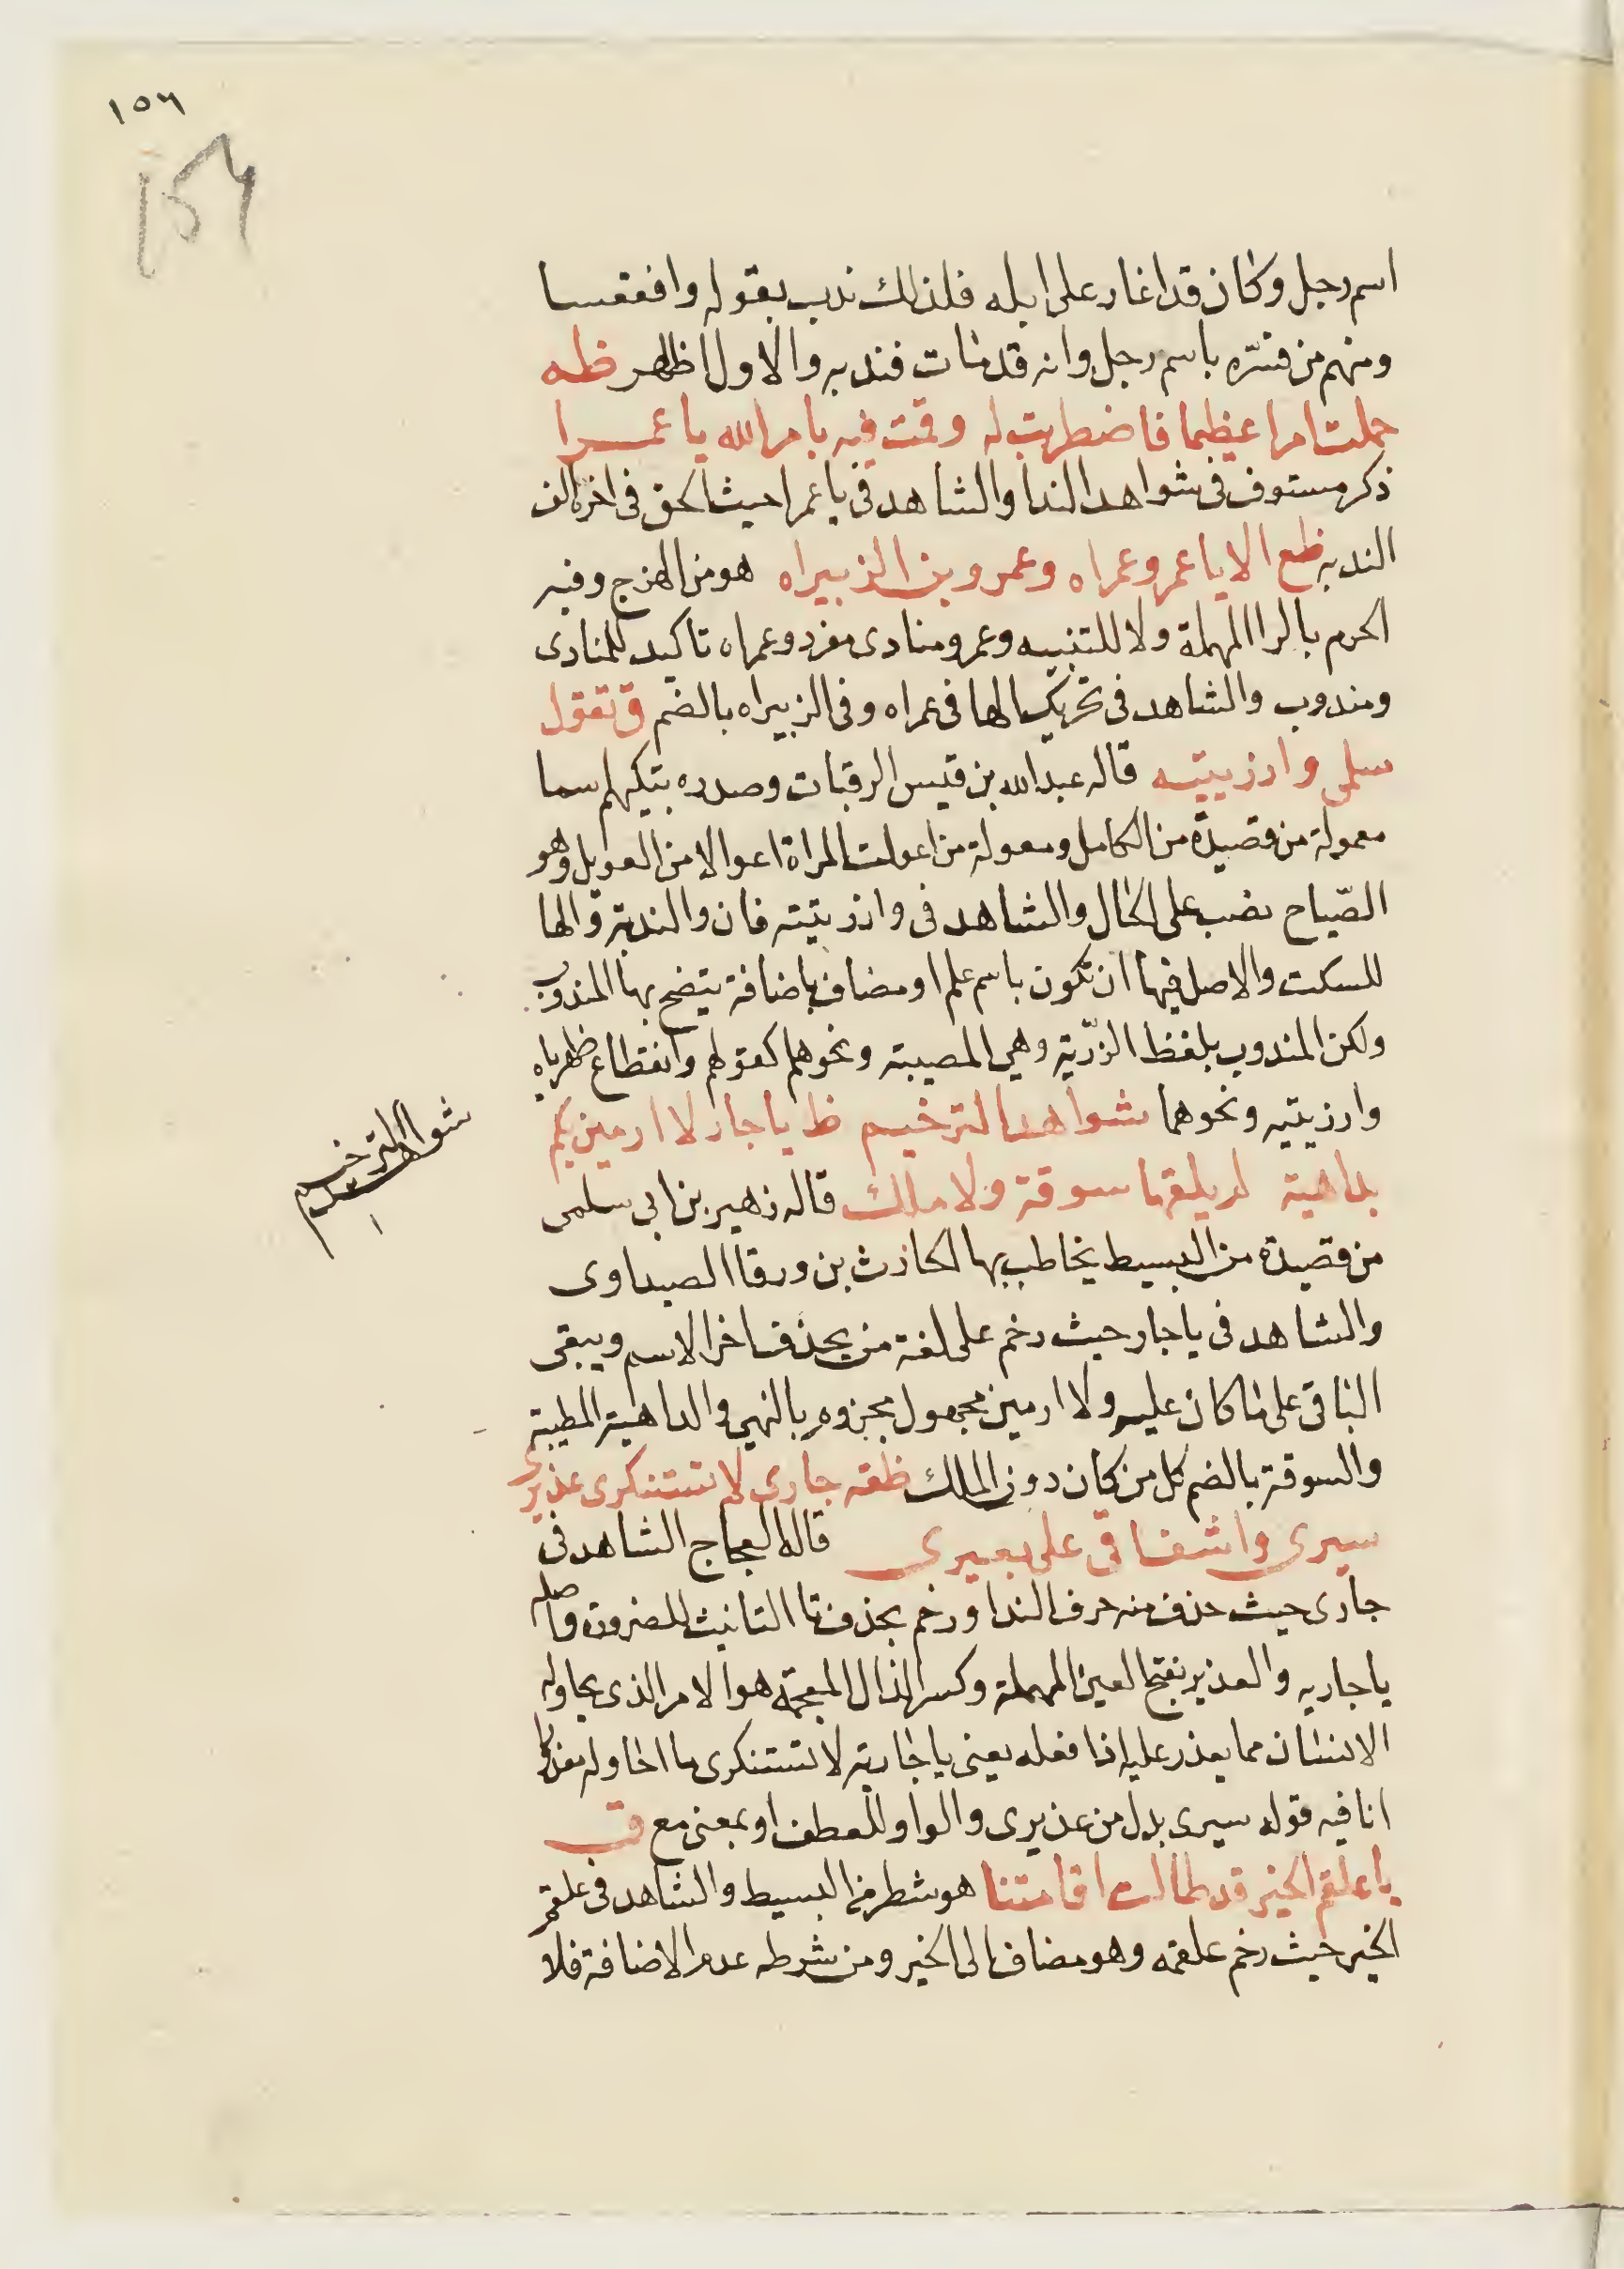 ١٥٦
١٥٦
اسم رجل وكان قد اغار على ابله فلذلك ندب بقوله وافقعسا
ومنهم من فسّره باسم رجل وانه قد مات فندبه والاول اظهر ظه
حملت امرا عظيما فاضطربت له وقمت فيه بامر الله يا عمرا
ذكر مستوفى فى شواهد الندا والشاهد فى يا عمرا حيث الحق فى اخره الف
الندبه ظع الا يا عمرو عمراه وعمرو بن الزبيراه هو من الهزج وفيه
الخرم بالرا المهملة ولا للتنبيه وعمرو منادى مفرد وعمراه تاكيد للمنادى
ومندوب والشاهد فى تحريك الها فى عمراه وفى الزبيراه بالضم ق تقول
سلمى وارزيتيه قاله عبد الله بن قيس الرقيات وصدره تبكيهم اسما
معولة من قصيدة من الكامل ومعولة من اعولت المراة اعوالا من العويل وهو
الصّياح نصب على الحال والشاهد فى وارزيتيه فان وا للندبة والها
للسكت والاصل فيها ان تكون باسم علم او مضاف باضافة يتضح بها المندوب
ولكن المندوب بلفظ الرزّية وهي المصيبة ونحوهم كقولهم وانقطاع ظهرياه
وارزيتيه ونحوهما شواهد الترخيم ظ يا حار لا ارمين بكم
بداهية لم يلقها سوقة ولا ملك قاله زهير بن ابى سلمى
من قصيدة من البسيط يخاطب بها الحارث بن ورقا الصيداوى
والشاهد فى يا حار حيث رخم على لغة من يحذف اخر الاسم ويبقى
الباقى على ما كان عليه ولا ارمين مجهول مجزوم بالنهي والداهية
والسوقة بالضم كل من كان دون الملك ظقه جارى لا تستنكرى عذيرى
سيرى واشفاقى على بعيرى قاله العجاج الشاهد فى
جارى حيث حذف منه حرف الندا ورخم بحذف تا التانيث للضرورة واصله
يا جاريه والعذير بفتح العين المهملة وكسر الذال المعجمة هو الامر الذى يحاوله
الانسان مما يعذر عليه اذا فعله يعنى يا جارية لا تستنكرى ما احاوله معذورا
انا فيه قوله سيرى بدل من عذيرى والواو للعطف او بمعنى مع ق
يا علقم الخير قد طالت اقامتنا هو شطر من البسيط والشاهد فى علقم
الخير حيث رخم علقمه وهو مضاف الى الخير ومن شرطه عدم الاضافة فلا
شواهد الترخيم